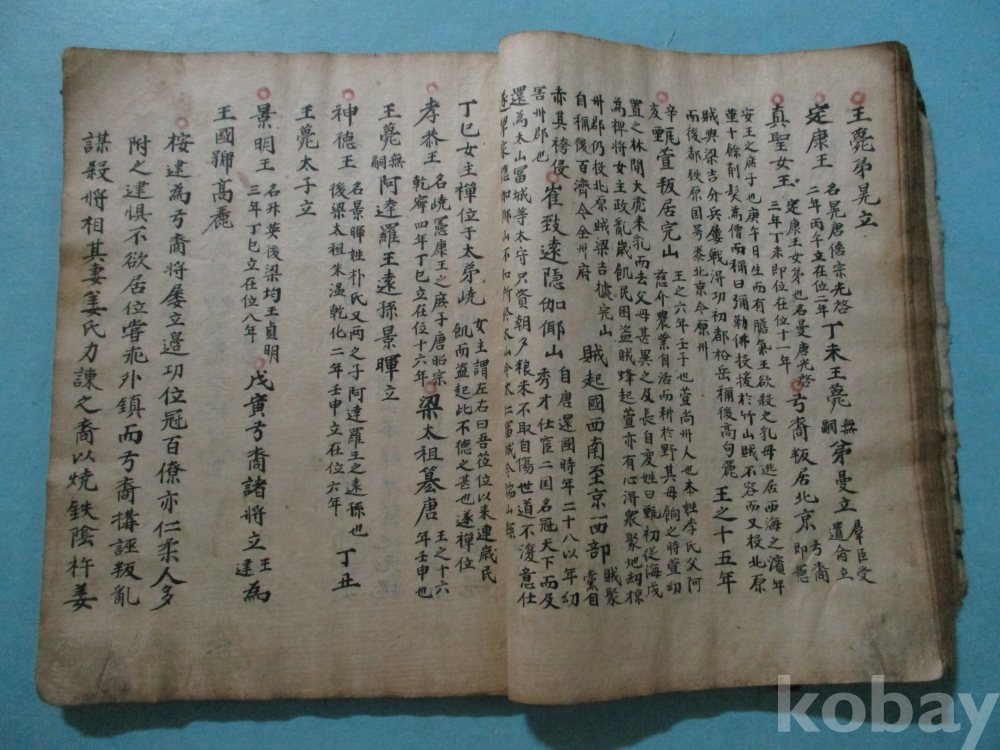 王薨弟晃立
定康王 名晃唐僖宗光啓二年丙午立在位二年 丁未王薨無嗣 弟曼立 羣臣受遺俞立
真聖女王 定康王女弟也名曼唐光啓三年丁未即位在位十一年 弓裔叛居北京 弓裔即憲
安王之庶子也庚午日生而有膽氣王欲殺之乳母逃居西海之濱年
十餘削髮為僧而稱曰彌勒佛投援於竹山賊不容而又投北原
賊與梁吉分兵屢戰得功初都松岳稱後高句麗 王之十五年
而後都鉄原国号泰北京今原州
辛亥 萱叛居完山 王之六年壬子也萱尚州人也本姓李氏父阿
慈介農業自活而耕於野其母餉之將萱幼
置之林間大虎来乳而去父母甚異之及長自変姓曰甄初従海戍
為裨將女主政亂歲飢民困盗賊蜂起萱亦有心得衆聚地刼掠
州郡仍投北原賊梁吉據完山
自稱後百濟今全州府 賊起國西南至京西部 賊聚
赤其袴侵
害州郡也 崔致遠隠伽倻山 自唐還國時年二十八以年幼
秀才仕宦二国名冠天下而及
還為太山冨城等太守只資朝夕狼朱不取自傷世道不復意仕
丁巳女主禪位于太弟嶢 女主謂左右曰吾莅位以来連歲民
飢而盗起此不德之甚也遂禪位
孝恭王 名嶢憲康王之庶子唐昭宗乾寧四年丁巳立在位十六年 梁太祖簒唐 王之十六年壬申也
王薨無嗣 阿達羅王遠孫景暉立
神德王 名景暉姓朴氏又兩之子阿達羅王之遠孫也後梁太祖朱温乾化二年壬申立在位六年 丁丑
王薨太子立
景明王 名升英後梁均王貞明三年丁巳立在位八年 戊寅弓裔諸將立王建為
王國號高麗
按建為弓裔將屢立邉功位冠百僚亦仁柔人多
附之建惧不欲居位嘗乖外鎮而弓裔搆誣叛亂
謀殺將相其妻姜氏力諫之裔以焼鉄陰杵姜
kobay